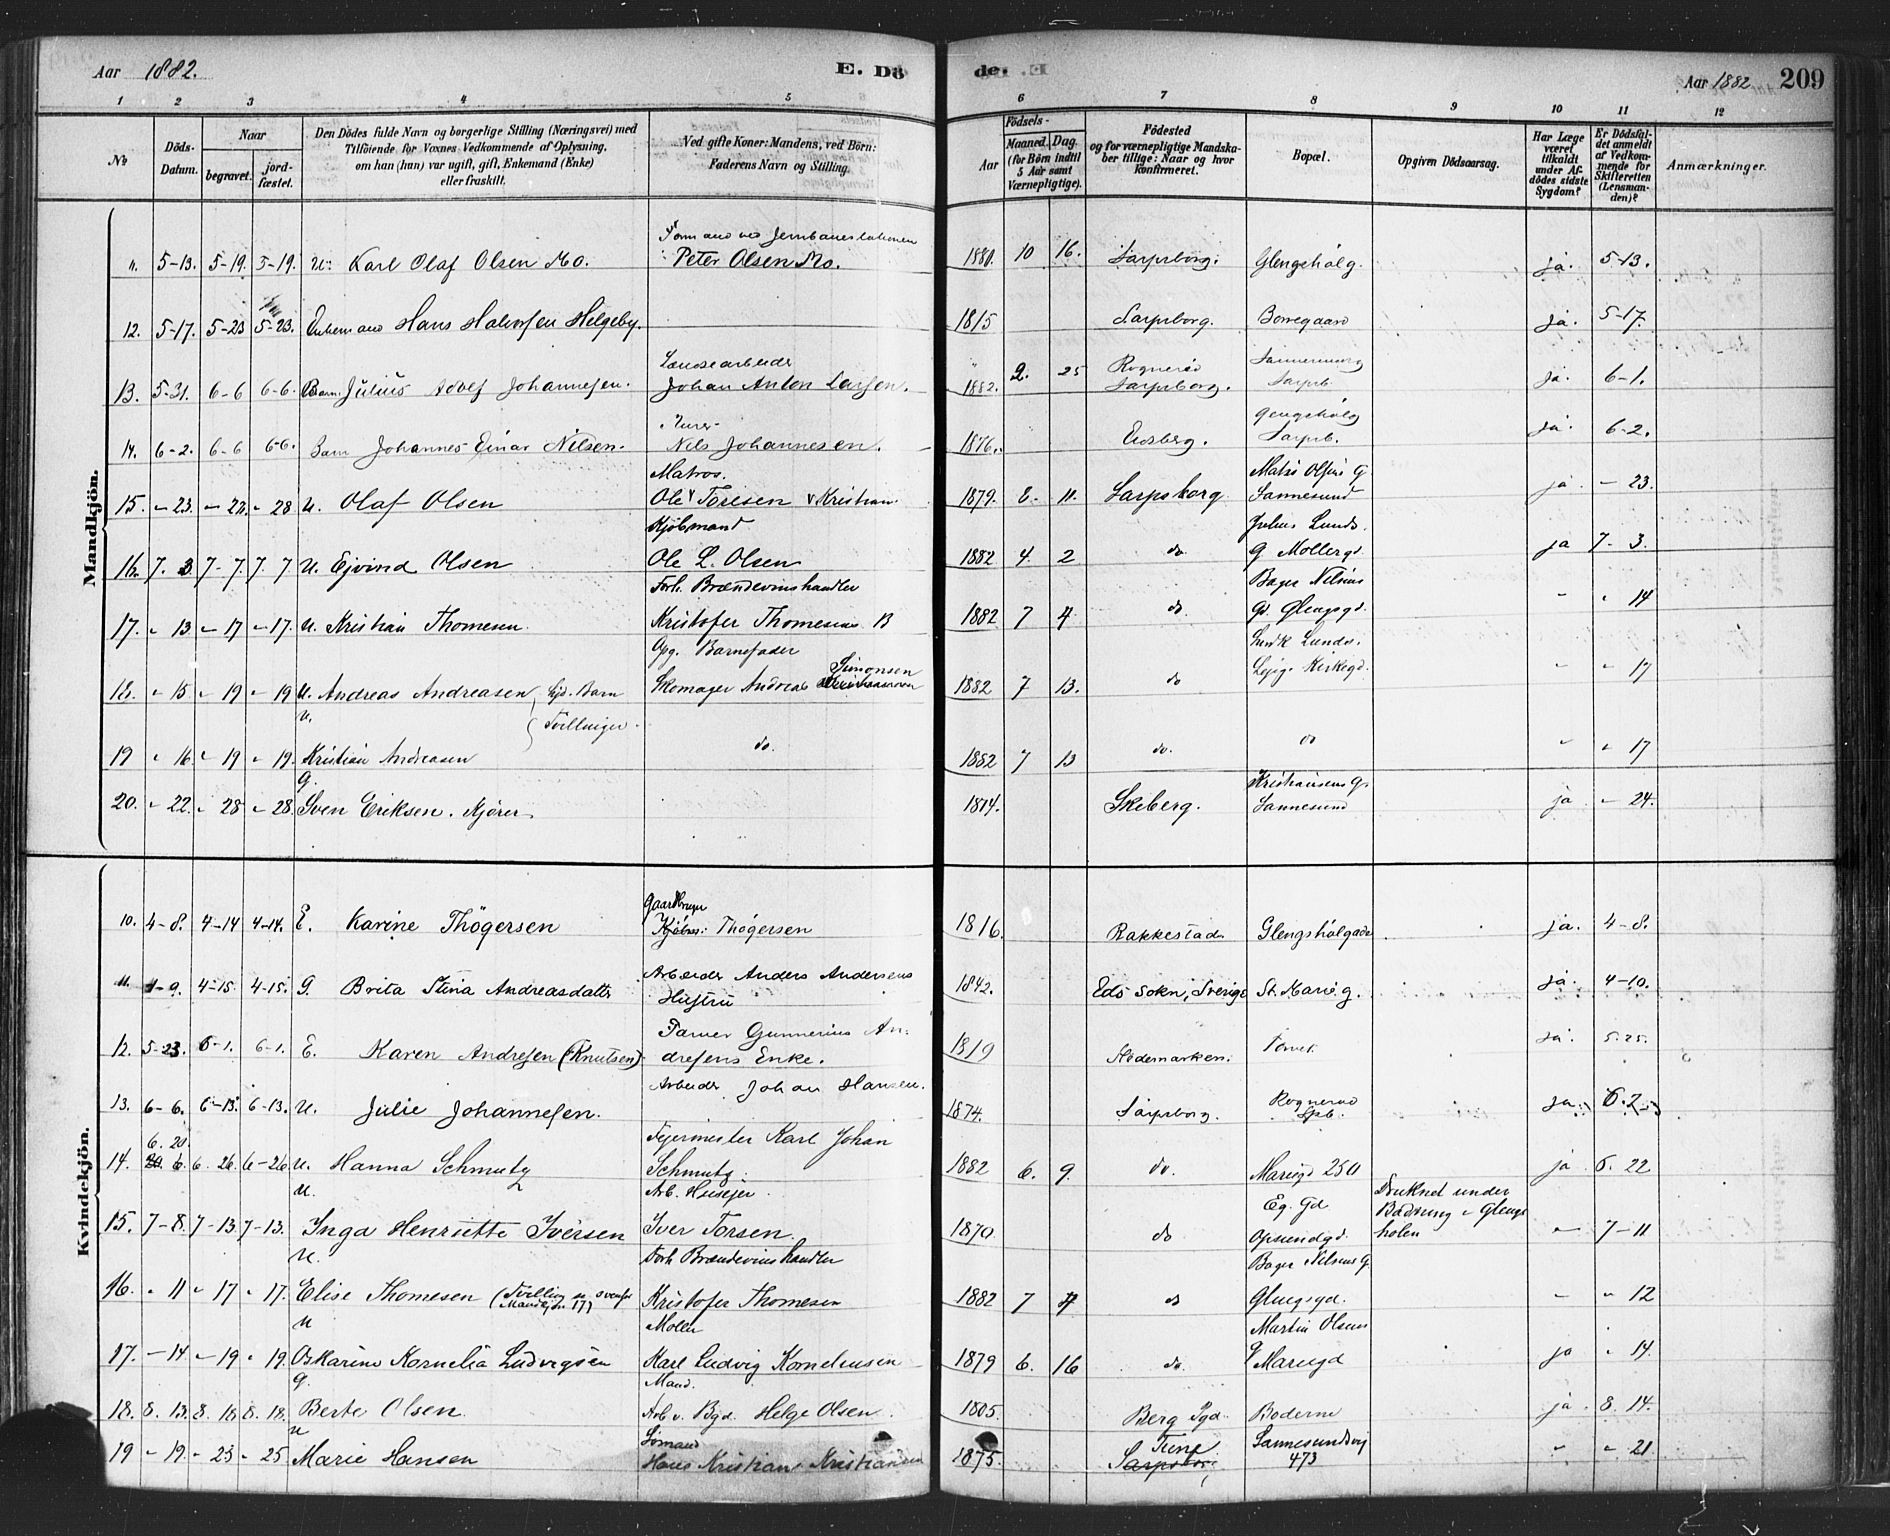 Aar 1882. E. Dö
de. Aar 1882 209
1 2 3 4 5
6 7 8 9 10 11 12
No
Döds-Datum.
Naar
begravet.
jord-fæstet.
Den Dödes fulde Navn og borgerlige Stilling (Næringsvei) med
Tilföiende for Voxnes Vedkommende af Oplysning,
om han (hun) var ugift, gift, Enkemand (Enke)
eller fraskilt.
Ved gifte Koner: Mandens, ved Börn:
Faderens Navn og Stilling.
Födsels-
Aar
Maaned. Dag.
(for Börn indtil
5 Aar samt
Værnepligtige).
Födested
og for værnepligtige Mandska-
ber tillige: Naar og hvor
konfirmeret.
Bopæl.
Opgiven Dödsaarsag.
Har Læge
været
tilkaldt
under Af-
dödes sidste
Sygdom?
Er Dödsfal-
det anmeldt
af Vedkom-
mende for
Skifteretten
(Lensman-
den)?
Anmærkninger.
Mandkjön.
Formand ved Jernbanestationen
11. 5-13. 5-19. 5-19. u. Karl Olaf Olsen Mo. Peter Olsen Mo. 1880. 10 16. Sarpsborg. Glengshölg. ja. 5-13.
12. 5-17. 5-23 5-23. Enkemand Hans Halvorsen Helgeby. 1815 Sarpsborg. Borregaard ja. 5-17.
Landsearbeider
13. 5-31. 6-6 6-6. Barn Julius Adolf Johannesen. Johan Anton Larsen. 1882. 2. 25 Rognerød Sarpsborg. Sannesund Sarpb. ja. 6-1.
14. 6-2. 6-6 6-6. Barn Johannes Einar Nilsen. Nils Johannesen. 1876. Eidsberg. Glengshölg Sarpb. ja. 6-2.
Matros.
15. " 23. " 28. " 28 u. Olaf Olsen Ole Toresen Kristian 1879. 8. 11. Sarpsborg Mats Olsens G Sannesund ja. " 23.
Kjöbmand
16. 7. 3. 7- 7. 7 7 u. Ejvind Olsen Ole L. Olsen 1882 4. 2 do Julius Lunds. G Mollergd. ja 7- 3.
Forh. Brændevinshandler
17. " 13 " 17 " 17. u. Kristian Thomesen Kristofer Thomesen B 1882 7 4 do Bager Nilsens Gd. Glengsgd. " " 14
Opg. Barnefader
18. " 15 " 19 " 19 u. Andreas Andreasen Skomager Andreas Simonsen 1882 7 13. do Lunds. Lejeg. Kirkegd. " " 17
Tvillinger.
19 " 16. " 19 " 19. u. Kristian Andreasen do. 1882 7 13 do. do " " 17
20. " 22. " 28 " 28. G. Sven Eriksen. Kjörer 1814. Skeberg. Kristiansens G. Sannesund ja " 24.
Kvindekjön.
10. 4-8. 4-14 4-14. E. Karine Thögersen Kjöbm: Thögersen 1816. Rakkestad. Glengshölgade ja. 4-8.
11. 4-9. 4-15. 4-15. G. Brita Stina Andreasdatter Arbeider Anders Andersens Hustru 1842. Eds Sokn, Sverige St. Marie g. ja. 4-10.
12. 5-23. 6-1. 6-1. E. Karen Andresen (Knutsen) Garver Gunnerius Andresens Enke. 1819 Rödemarken. Torvet. ja. 5-25.
13. 6-6. 6-13. 6-13. u. Julie Johannesen. Arbeider Johan Hansen. 1874. Sarpsborg. Rognerød Spb. ja. 6-7
14. 6. 20 6. 26. 6-26. u. Hanna Schmutz Fejermester Karl Johan Schmutz. 1882 6. 9. do. Mariegd 250 ja 6. 22
Arb. Huseier
15. 7-8. 7-13 7-13. u. Inga Henriette Iversen Iver Torsen. 1870. do Eg. Gd Opsundgd. Druknet under Badning i Glengsholen " 7-11
Forh Brændevinshandler
16. " 11 " 17 " 17. u. Elise Thomesen (Tvilling m. ovenfor Mandkjön 17) Kristofer Thomesen 1882 7 4 do Bager Nilsens G. Glengsgd. " " 12
Moller
17. " 14 " 19 " 19. u Oskarine Kornelia Ludvigsen Karl Ludvig Kornelinsen 1879 6. 16 do. Martin Olsens G Mariegd ja " 14.
Mand.
18. 8. 13. 8. 18. 8. 18. G. Berte Olsen Arb v. Bgd. Helge Olsen 1805. Berg Pgd. Boderne ja 8. 14.
Sömand
19 " 19. " 23 " 25 u Marie Hansen Hans Kristian Kristiansen 1875. Tune Sarpsborg Sannesundsvej 473 " " 21.